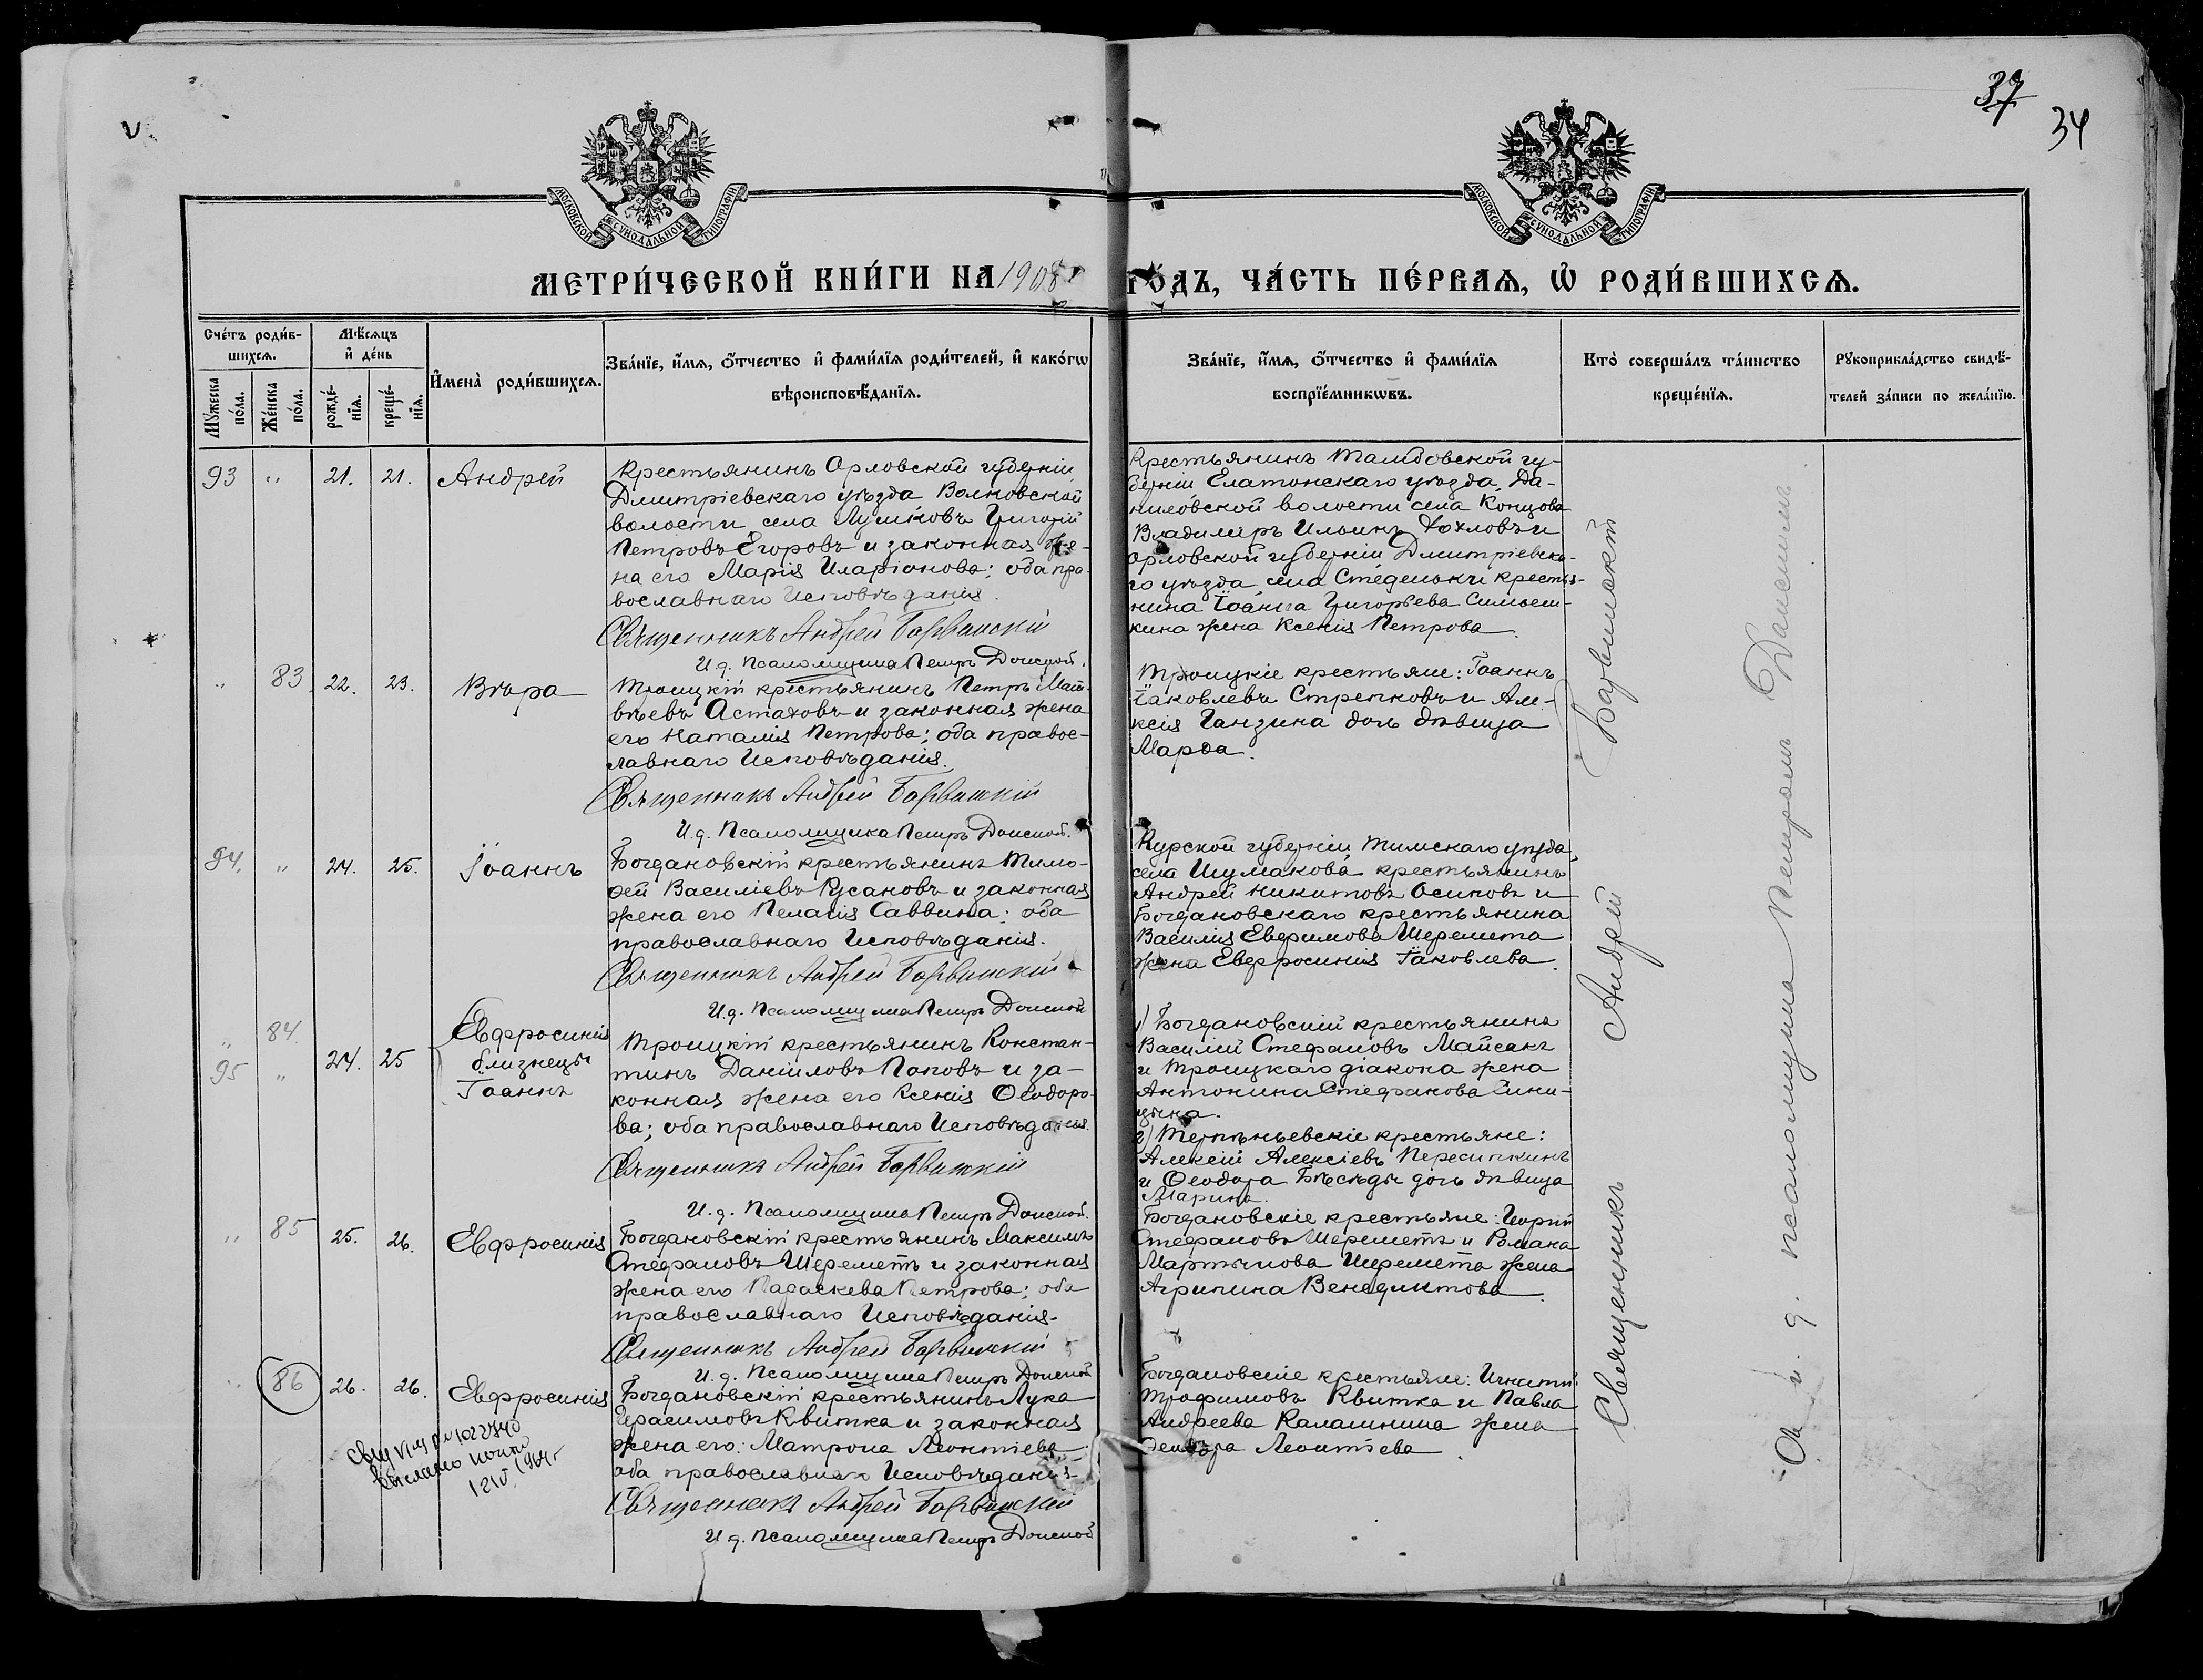 37
34
МОСКОВСКОЙ СУНОДАЛЬНОЙ ТИПОГРАФІИ
МОСКОВСКОЙ СУНОДАЛЬНОЙ ТИПОГРАФІИ
МЕТРИ́ЧЕСКОЙ КНИ́ГИ НА 1908 ГО́ДЪ, ЧА́СТЬ ПЕ́РВАѦ, Ѡ҆ РОДИ́ВШИХСѦ.
Сче́тъ роди́в-
шихсѧ.
Мꙋжеска по́ла.
Же́нска по́ла.
Мѣ́сѧцъ
и҆ де́нь
рожде́-
нїѧ.
креще́-
нїѧ.
И҆мена̀ роди́вшихсѧ.
Зва́нїе, и҆́мѧ, ѻ҆́тчество и҆ фами́лїѧ роди́телей, и҆ како́гѡ
вѣроисповѣ́данїѧ.
Зва́нїе, и҆́мѧ, ѻ҆́тчество и҆ фами́лїѧ
воспрїе́мникѡвъ.
Кто̀ соверша́лъ та́инство
креще́нїѧ.
Рꙋкоприкла́дство свидѣ́-
телей за́писи по жела́нїю.
93 " 21. 21. Андрей
Крестьянинъ Орловской губерніи
Дмитріевскаго уѣзда Волковской
волости села Григорій
Петровъ Егоровъ и законная же-
на его Марія Иларіонова; оба пра-
вославнаго Исповѣданія.
Священникъ Андрей Барвинскій
И. д. Псаломщика Петръ Донской.
Крестьянинъ Тамбовской гу-
берніи Елатомскаго уѣзда, Да-
ниловской волости села Концова
Владиміръ Ильинъ Хохловъ и
Орловской губерніи Дмитріевска-
го уѣзда, села крестья-
нина Іоанна Григорьева
кина жена Ксенія Петрова.
" 83 22. 23. Вѣра
Троицкій крестьянинъ Петръ Мат-
вѣевъ Астаховъ и законная жена
его Наталія Петрова; оба правос-
лавнаго Исповѣданія.
Священникъ Андрей Барвинскій
И. д. Псаломщика Петръ Донской.
Троицкіе крестьяне: Іоаннъ
Іаковлевъ Стрепковъ и Але-
ксія Ганзина дочь дѣвица
Марѳа.
94. " 24. 25. Іоаннъ
Богдановскій крестьянинъ Тимо-
ѳей Василіевъ Русановъ и законная
жена его Пелагія Саввина; оба
православнаго Исповѣданія.
Священникъ Андрей Барвинскій
И. д. Псаломщика Петръ Донской
Курской губерніи Тимскаго уѣзда,
села Шумакова крестьянинъ
Андрей Никитовъ Осиповъ и
Богдановскаго крестьянина
Василія Евѳимова Шеремета
жена Евфросинія Іаковлева.
" 84. Евфросинія
24. 25 близнецы
95 " Іоаннъ
Троицкій крестьянинъ Констан-
тинъ Даніиловъ Поповъ и за-
конная жена его Ксенія Ѳеодоро-
ва; оба православнаго Исповѣданія.
Священникъ Андрей Барвинскій
И. д. Псаломщика Петръ Донской.
1) Богдановскій крестьянинъ
Василій Стефановъ Майсакъ
и Троицкаго діакона жена
Антонина Стефанова Сини-
цына.
2) Терпѣньевскіе крестьяне:
Алексій Алексіевъ Пересипкинъ
и Ѳеодора Бѣсѣды дочь дѣвица
Марина.
" 85 25. 26. Евфросинія
Богдановскій крестьянинъ Максимъ
Стефановъ Шереметъ и законная
жена его Параскева Петрова; оба
православнаго Исповѣданія.
Священникъ Андрей Барвинскій
И. д. Псаломщика Петръ Донской
Богдановскіе крестьяне:
Стефановъ Шереметъ и Романа
Мартынова Шеремета жена
Агрипина Венедиктова.
" 86 26. 26. Евфросинія
Богдановскій крестьянинъ Лука
Герасимовъ Квитка и законная
жена его: Матрона Леонтіева
оба православнаго Исповѣданія
Священникъ Андрей Барвинскій
И. д. Псаломщика Петръ Донской
Богдановскіе крестьяне: Игнатій
Трофимовъ Квитка и Павла
Андреева Калашника жена
Леонтіева.
Священникъ Андрей Барвинскій
и. д. псаломщика Петромъ Донскимъ